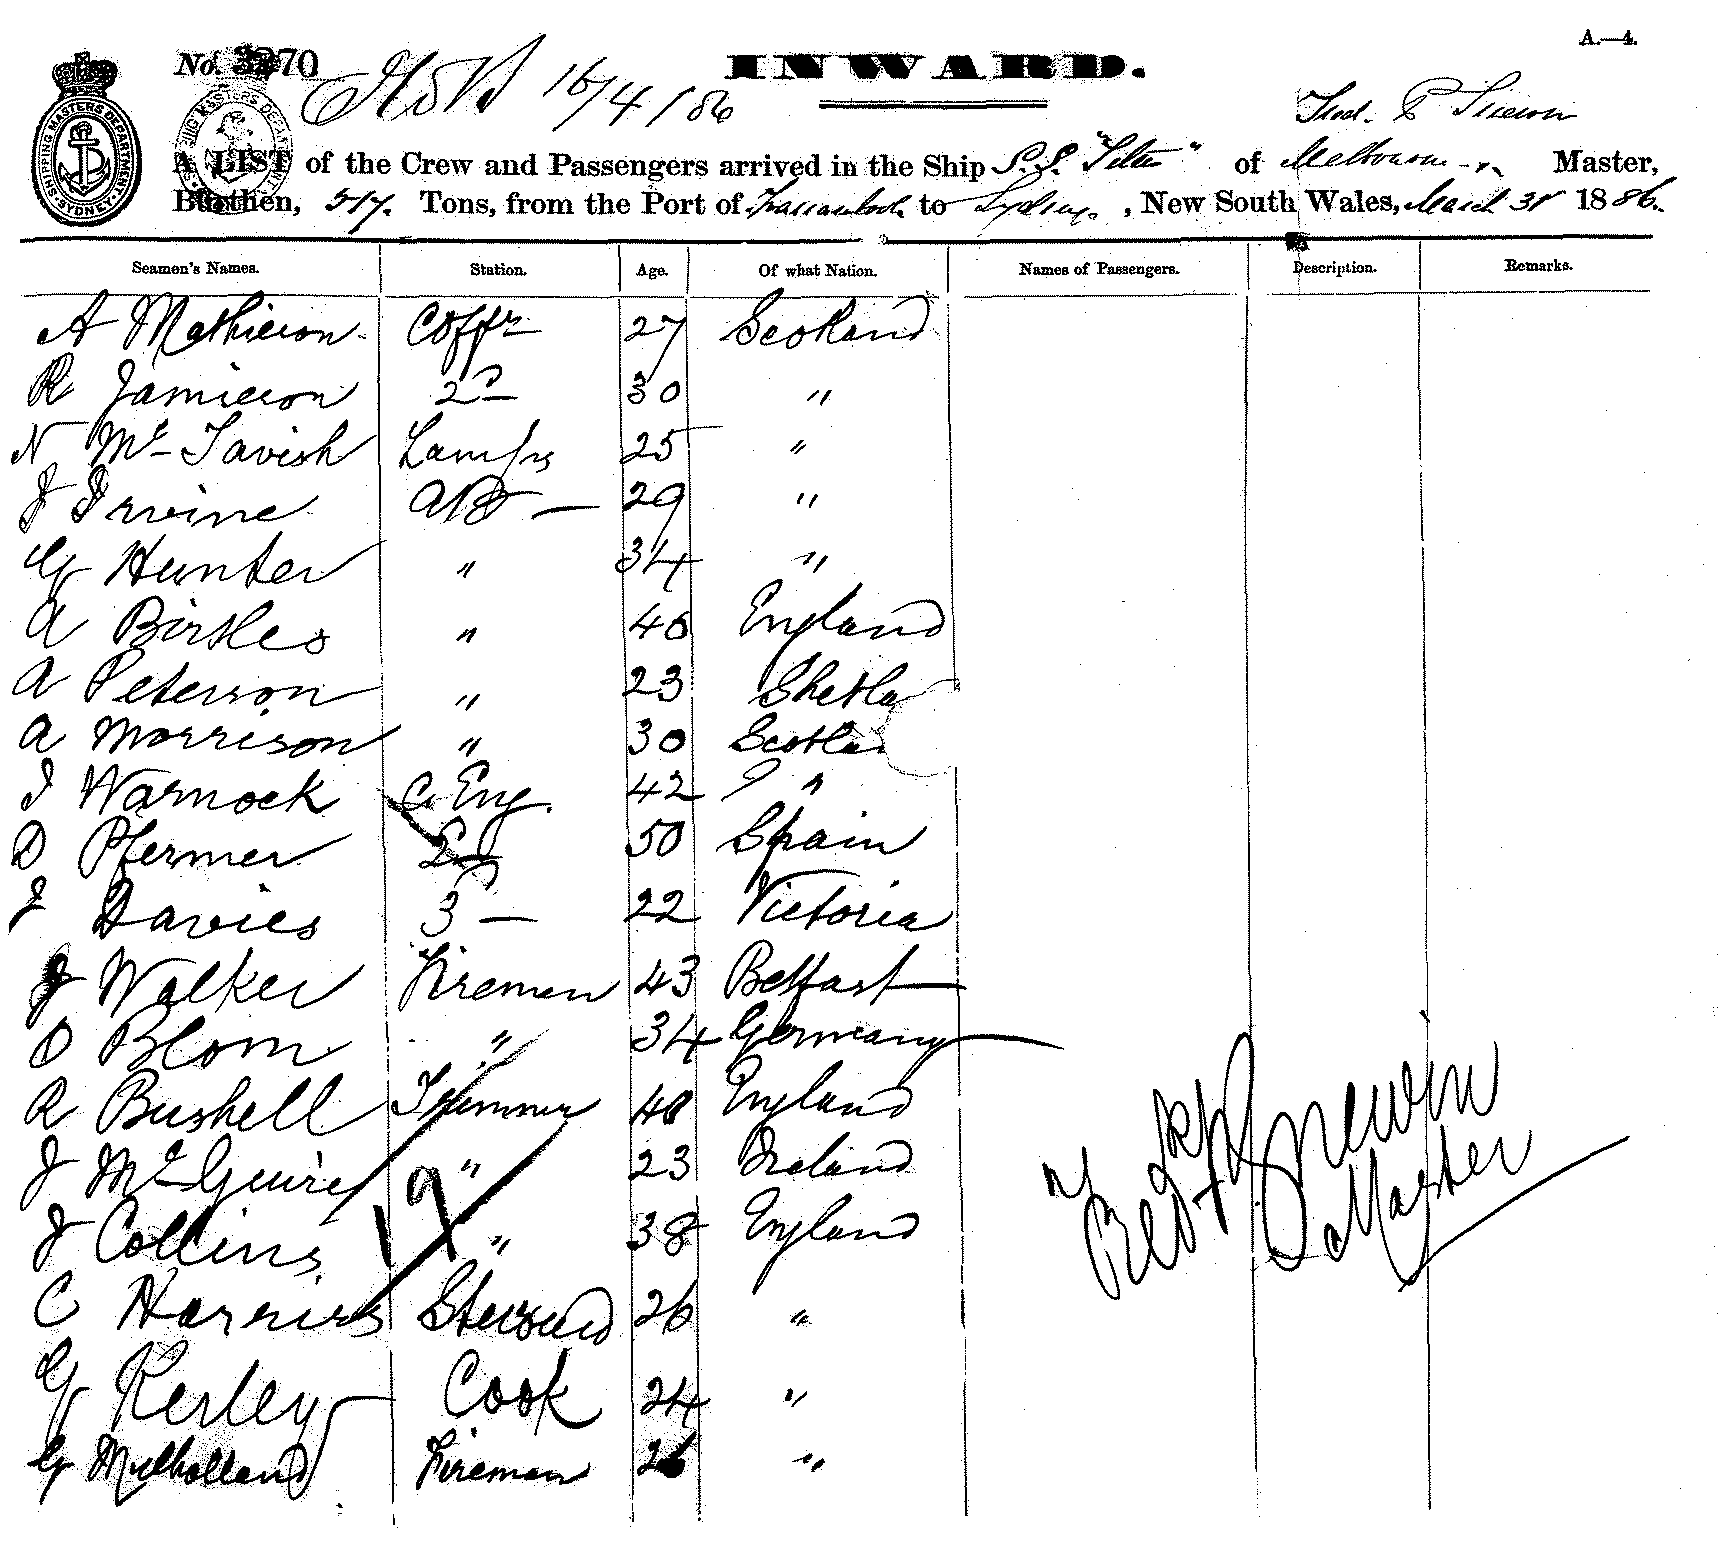 A.—4.
No. 3270
16/4/86
INWARD.
A LIST of the Crew and Passengers arrived in the Ship S.S. of Melbourne Master,
Burthen, 517. Tons, from the Port of to Sydney, New South Wales, March 31 1886.
SHIPPING MASTERS DEPARTMENT SYDNEY
Seamen's Names. Station. Age. Of what Nation. Names of Passengers. Description. Remarks.
A Mathieson 27 Scotland
R Jamieson 2d 30 "
N Mc Tavish Lamps 25 "
J Irvine AB — 29 "
G Hunter " 34 "
A Birkles " 40 England
A Peterson " 23 Shetla
A Morrison " 30 Scotlan
J Warnock C. Eng. 42 "
D Pfermer 2d 50 Spain
J Davies 3d — 22 Victoria
J Walker Fireman 43 Belfast
O Blom " 34 Germany
R Bushell Trimmer 40 England
J McGuire " 23 Ireland
J Collins " 38 England
19
C Harries Steward 26 "
G Kerley Cook 24 "
G Mulholland Fireman 26 "
Master